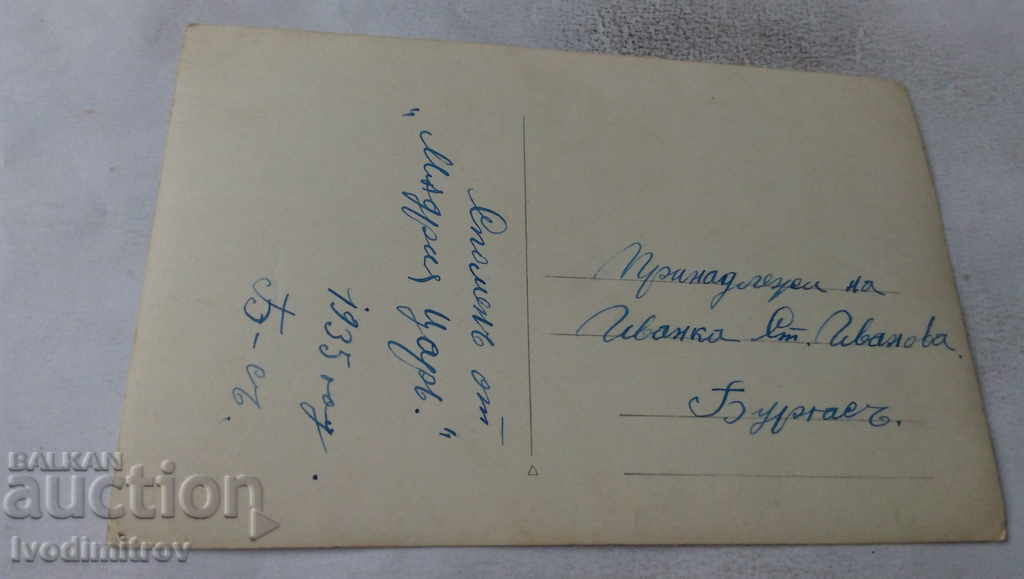 Споменъ от
"Мадрия Царъ."
1935 год.
Б-съ.
Принадлежи на
Иванка Ст. Иванова.
Бургасъ.
BALKAN
auction
Ivodimitrov